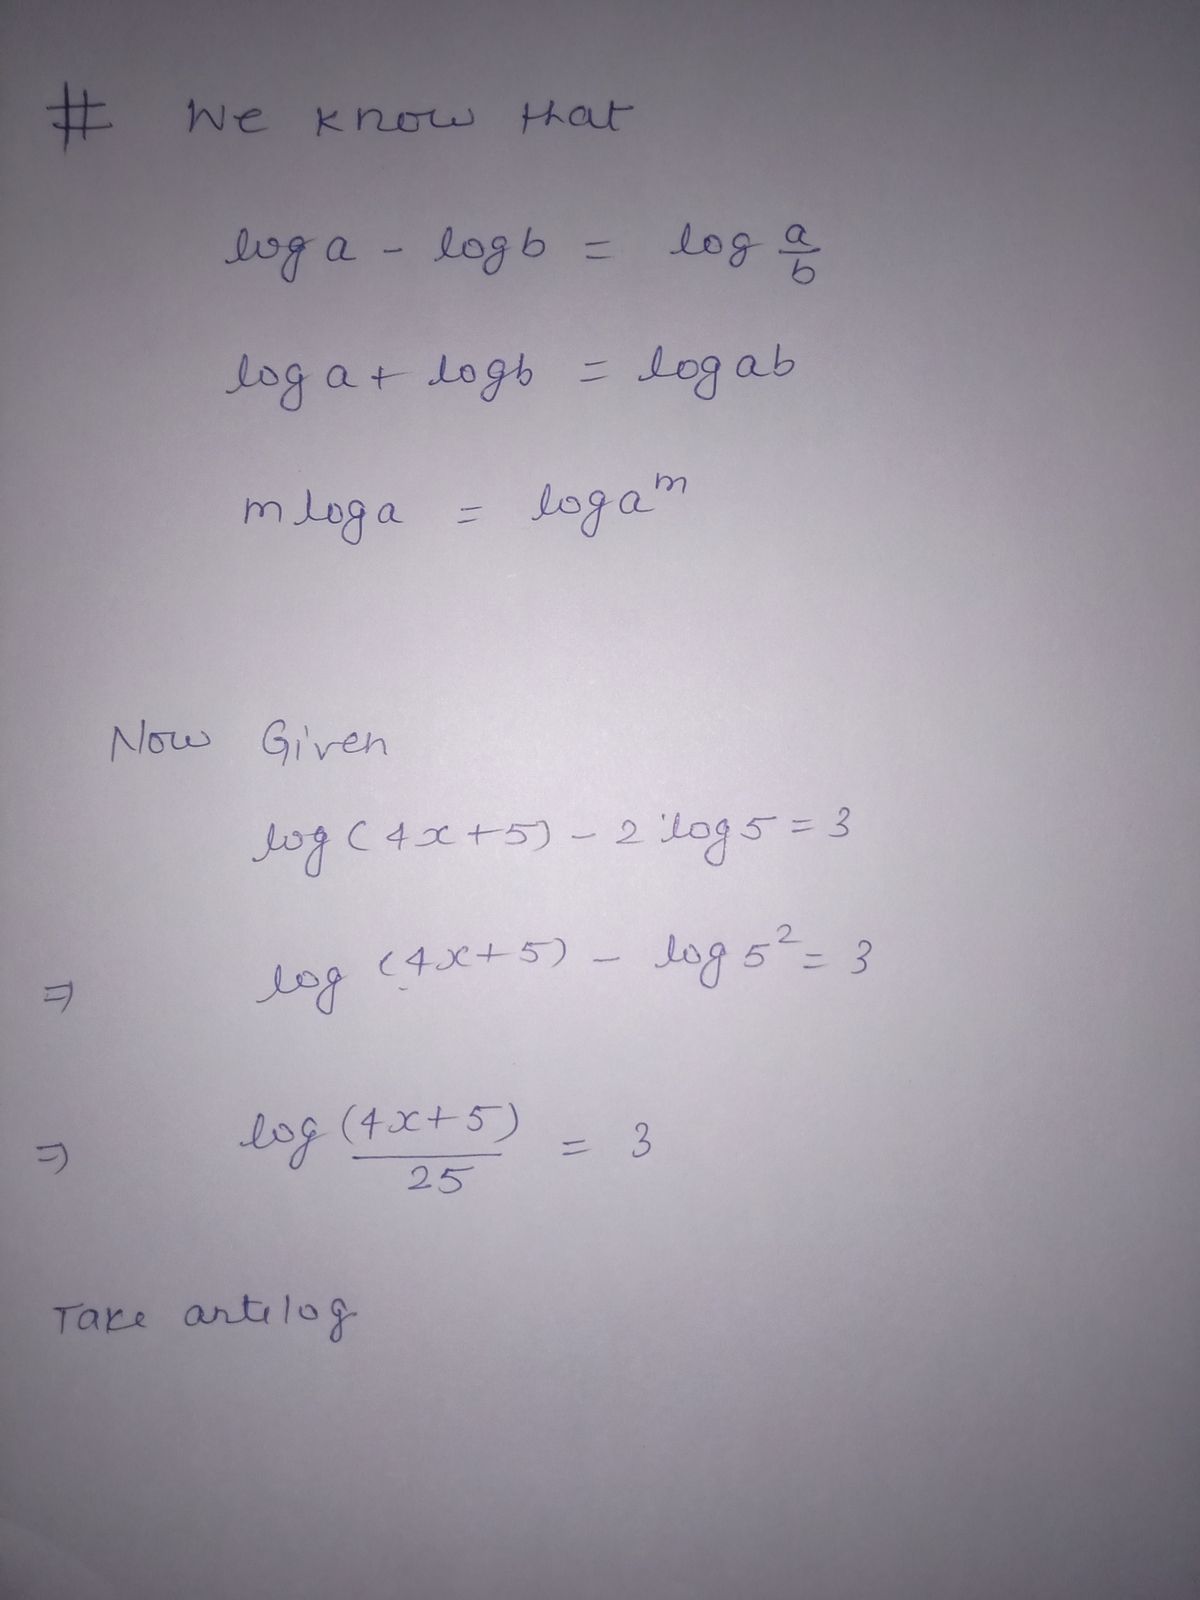 # We know that
log a - log b = log a/b
log a + log b = log ab
m log a = log a^m
Now Given
log (4x+5) - 2 log 5 = 3
⇒ log (4x+5) - log 5² = 3
⇒ log (4x+5)/25 = 3
Take antilog